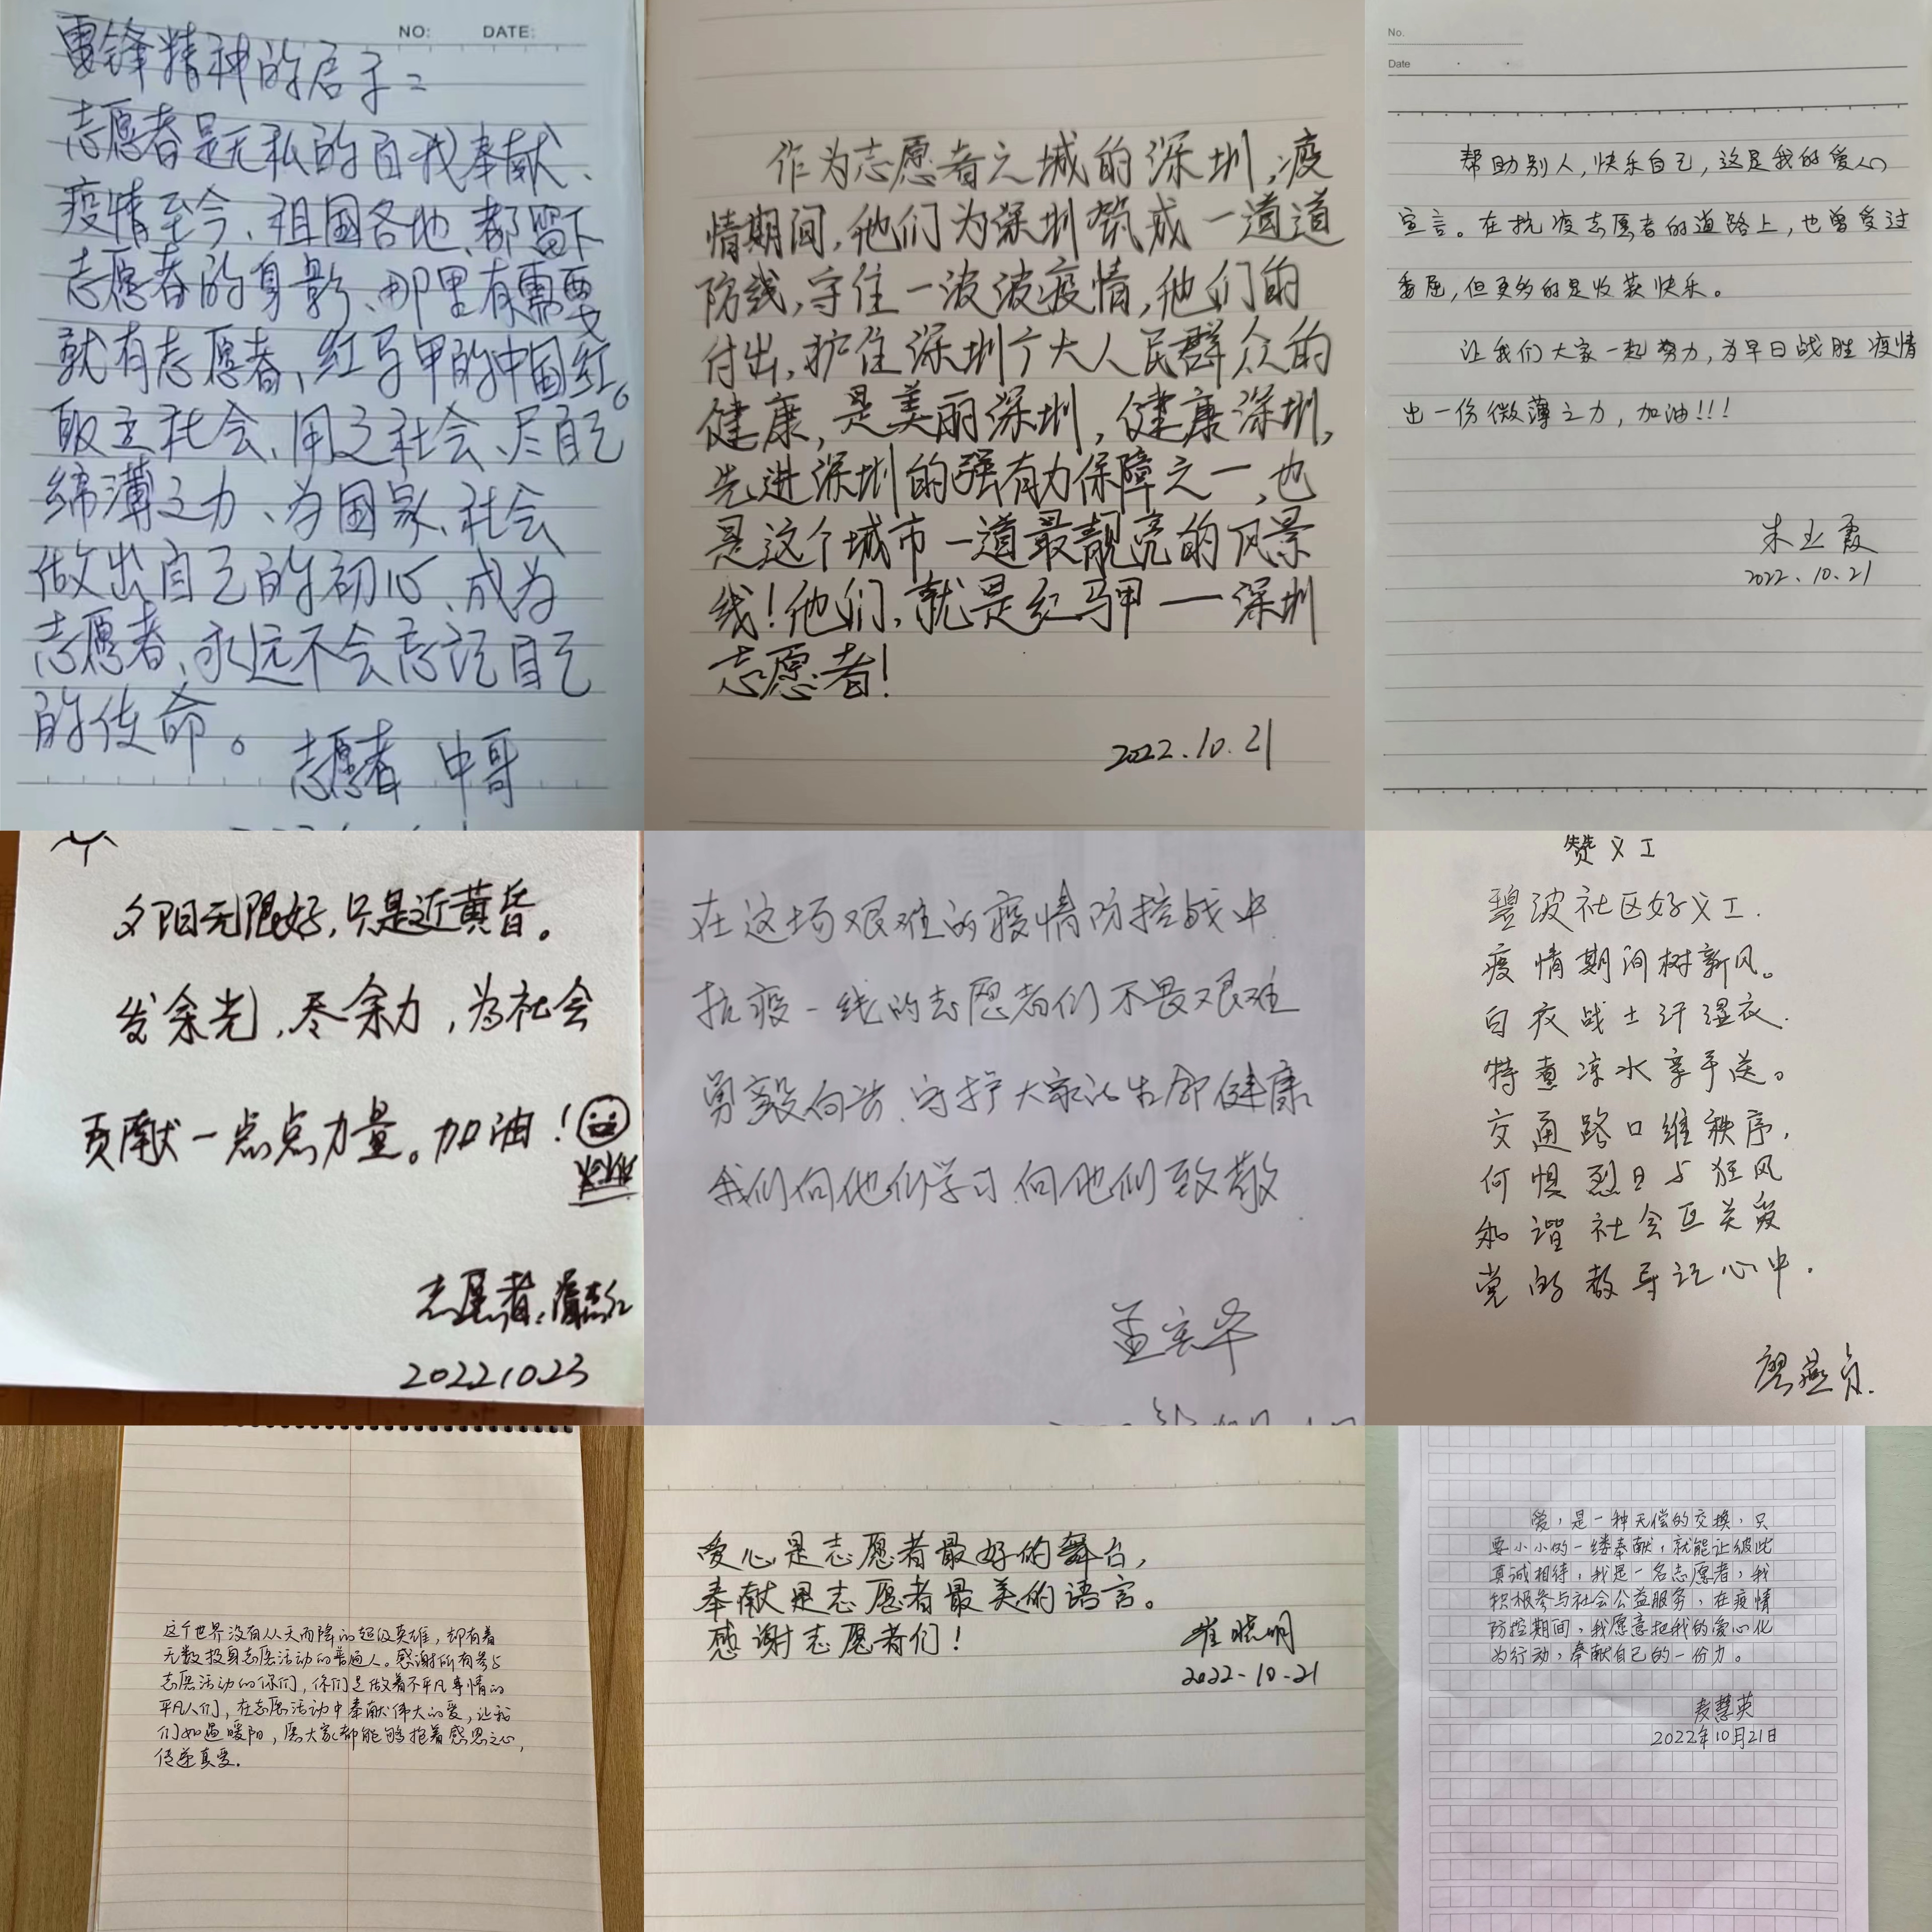 NO: DATE:
雷锋精神的启示：
志愿者是无私的自我奉献、
疫情至今、祖国各地、都留下
志愿者的身影、那里有需要
就有志愿者、红马甲的中国红。
取之社会、用之社会、尽自己
绵薄之力、为国家、社会
做出自己的初心、成为
志愿者、永远不会忘记自己
的使命。
志愿者 中哥
作为志愿者之城的深圳,疫
情期间,他们为深圳筑成一道道
防线,守住一波波疫情,他们的
付出,护住深圳广大人民群众的
健康,是美丽深圳,健康深圳,
先进深圳的强有力保障之一,也
是这个城市一道最靓亮的风景
线!他们,就是红马甲——深圳
志愿者!
2022.10.21
No.
Date
帮助别人,快乐自己,这是我的爱心
宣言。在抗疫志愿者的道路上,也曾受过
委屈,但更多的是收获快乐。
让我们大家一起努力,为早日战胜疫情
出一份微薄之力,加油!!!
朱玉霞
2022.10.21
夕阳无限好,只是近黄昏。
发余光,尽余力,为社会
贡献一点点力量。加油!
志愿者:
2022.10.23
在这场艰难的疫情防控战中
抗疫一线的志愿者们不畏艰难
勇毅向前 守护大家的生命健康
我们向他们学习 向他们致敬
孟宏华
赞义工
碧波社区好义工.
疫情期间树新风。
白衣战士汗湿衣.
特煮凉水亲手送。
交通路口维秩序,
何惧烈日与狂风
和谐社会互关爱
党的教导记心中.
廖燕
这个世界没有从天而降的超级英雄,却有着
无数投身志愿活动的普通人。感谢所有参与
志愿活动的你们,你们是做着不平凡事情的
平凡人们,在志愿活动中奉献伟大的爱,让我
们如遇暖阳,愿大家都能够抱着感恩之心,
传递真爱.
爱心是志愿者最好的舞台,
奉献是志愿者最美的语言。
感谢志愿者们!
崔晓明
2022-10-21
爱,是一种无偿的交换,只
要小小的一缕奉献,就能让彼此
真诚相待,我是一名志愿者,我
积极参与社会公益服务,在疫情
防控期间,我愿意把我的爱心化
为行动,奉献自己的一份力。
麦慧英
2022年10月21日